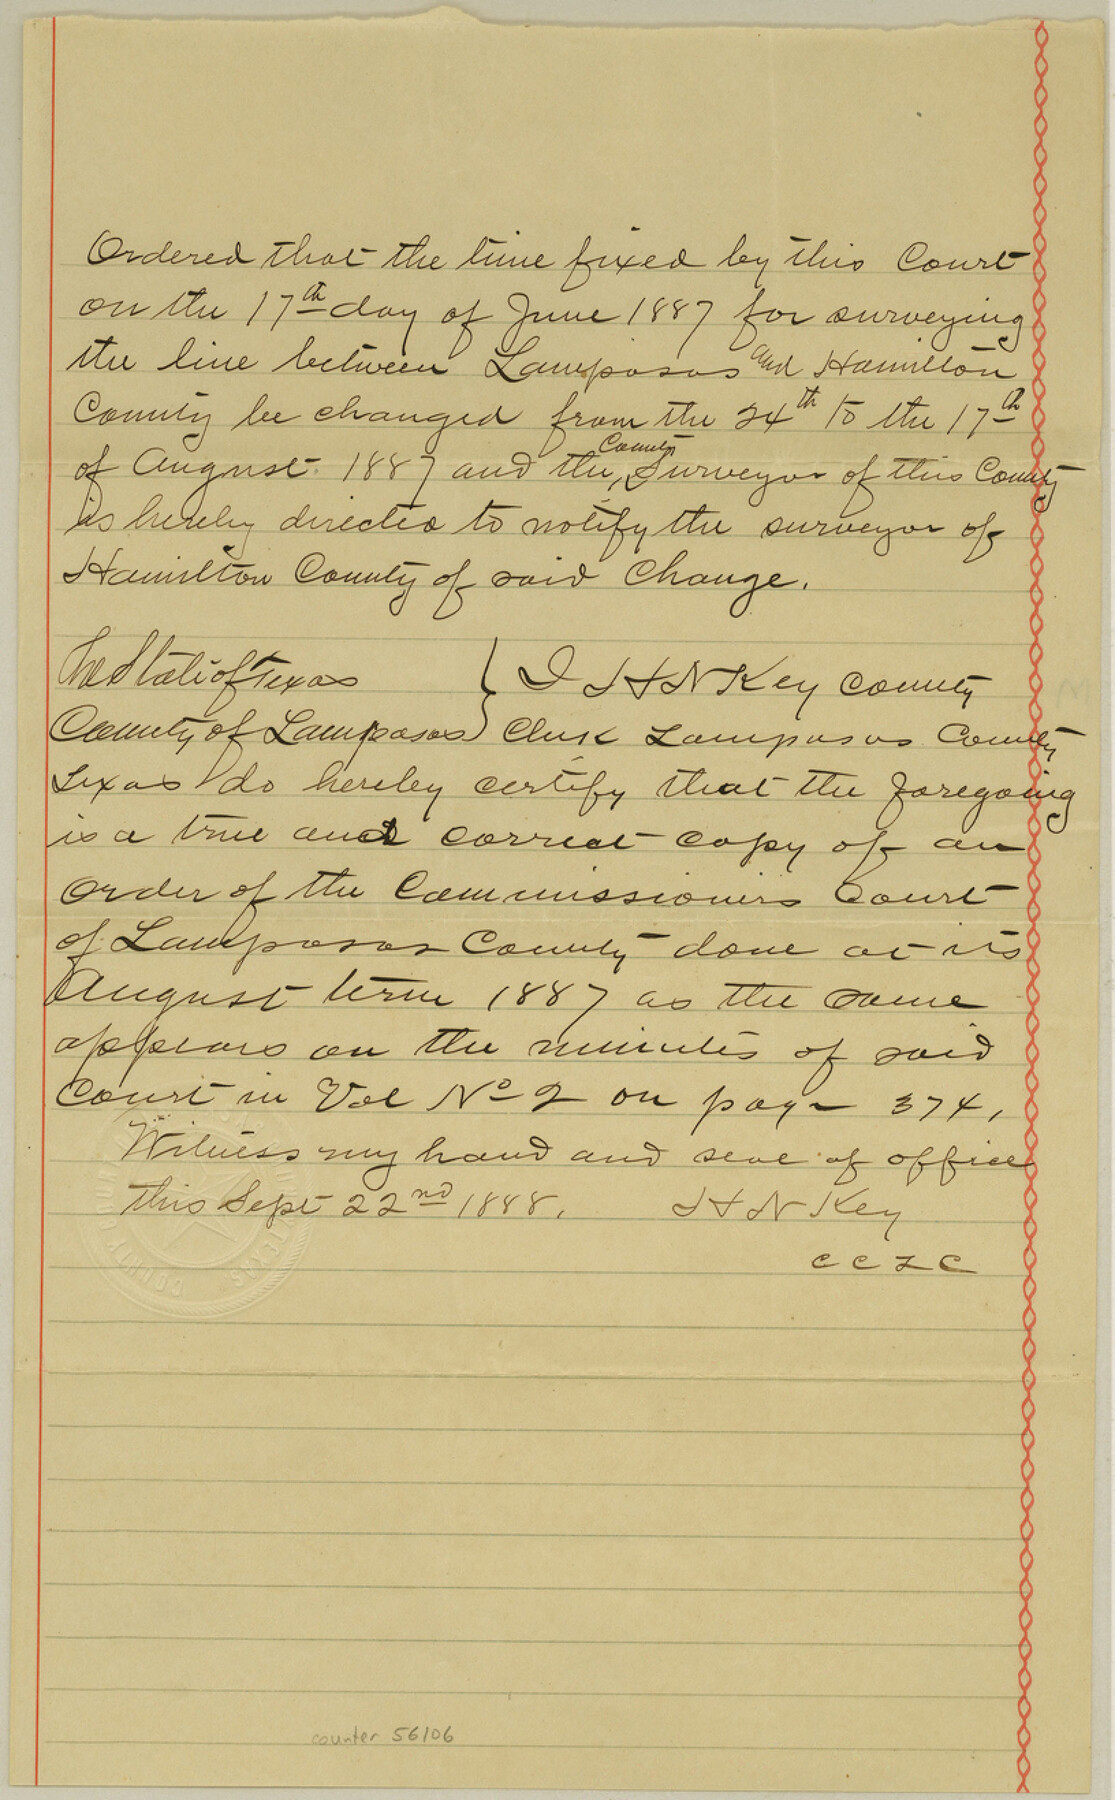 Ordered that the time fixed by this Court
on the 17th day of June 1887 for surveying
the line between Lampasas and Hamilton
County be changed from the 24th to the 17th
of August 1887 and the County Surveyor of this County
is hereby directed to notify the surveyor of
Hamilton County of said Change.
The State of Texas } I H N Key County
County of Lampasas } Clerk Lampasas County
Texas do hereby certify that the foregoing
is a true and correct copy of an
order of the Commissioners Court
of Lampasas County done at its
August term 1887 as the same
appears on the minutes of said
Court in Vol No 2 on page 374,
Witness my hand and seal of office
this Sept 22nd 1888. H N Key
C C L C
counter 56106